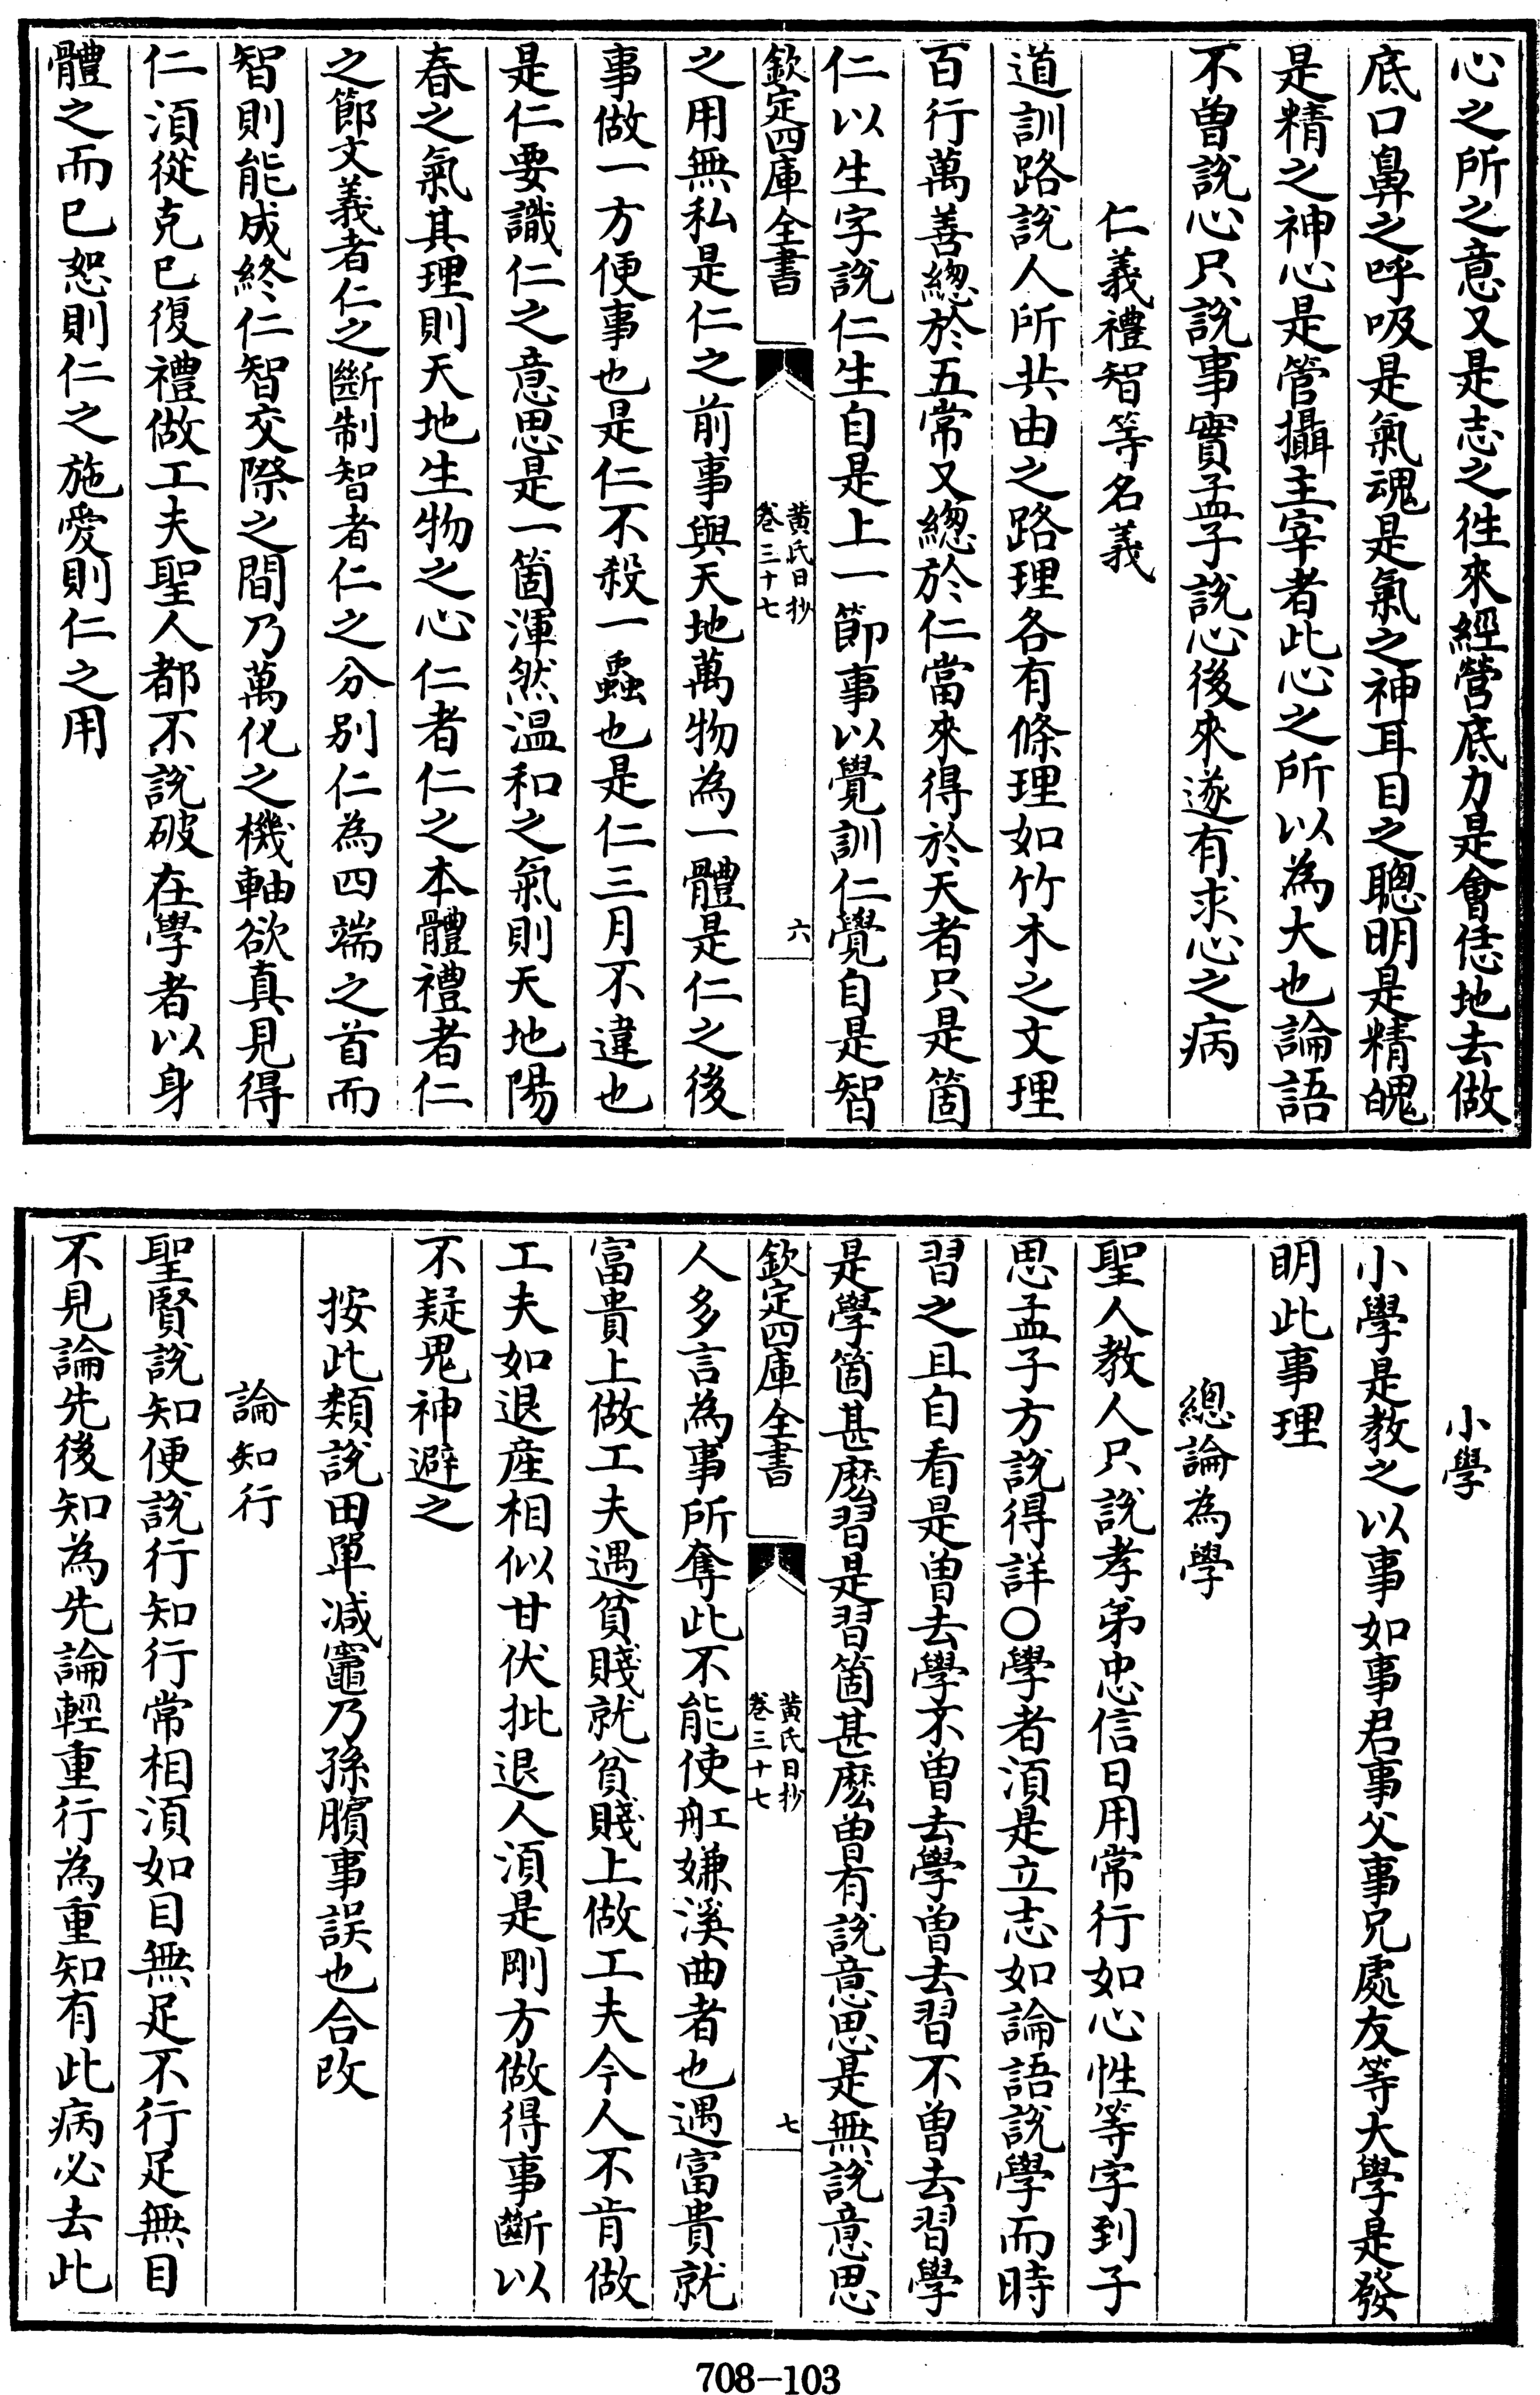 心之所之意又是志之徃來經營底力是會恁地去做
底口鼻之呼吸是氣魂是氣之神耳目之聰明是精魄
是精之神心是管攝主宰者此心之所以為大也論語
不曾説心只説事實孟子説心後來遂有求心之病
仁義禮智等名義
道訓路説人所共由之路理各有條理如竹木之文理
百行萬善總於五常又總於仁當來得於天者只是箇
仁以生字説仁生自是上一節事以覺訓仁覺自是智
欽定四庫全書
黄氏日抄
卷三十七
六
之用無私是仁之前事與天地萬物為一體是仁之後
事做一方便事也是仁不殺一蟲也是仁三月不違也
是仁要識仁之意思是一箇渾然温和之氣則天地陽
春之氣其理則天地生物之心仁者仁之本體禮者仁
之節文義者仁之斷制智者仁之分别仁為四端之首而
智則能成終仁智交際之間乃萬化之機軸欲真見得
仁須從克已復禮做工夫聖人都不説破在學者以身
體之而已恕則仁之施愛則仁之用
小學
小學是教之以事如事君事父事兄處友等大學是發
明此事理
總論為學
聖人教人只説孝弟忠信日用常行如心性等字到子
思孟子方説得詳○學者須是立志如論語説學而時
習之且自看是曾去學不曾去學曾去習不曾去習學
是學箇甚麽習是習箇甚麽曾有説意思是無説意思
欽定四庫全書
黄氏日抄
卷三十七
七
人多言為事所奪此不能使舡嫌溪曲者也遇富貴就
富貴上做工夫遇貧賤就貧賤上做工夫今人不肯做
工夫如退産相似甘伏批退人須是剛方做得事斷以
不疑鬼神避之
按此類説田單减竈乃孫臏事誤也合改
論知行
聖賢説知便説行知行常相須如目無足不行足無目
不見論先後知為先論輕重行為重知有此病必去此
708-103